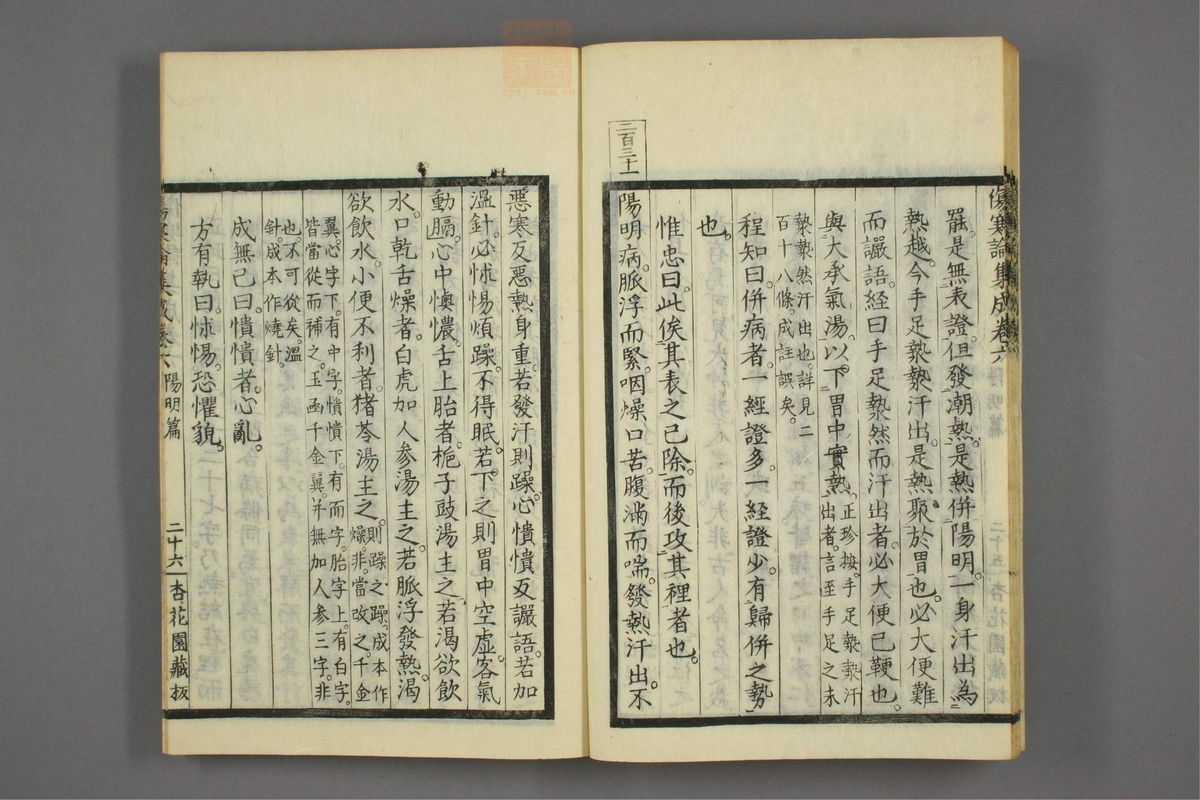 傷寒論集成卷六
罷。是無表證。但發潮熱。是熱併陽明。一身汗出為
熱越。今手足漐漐汗出。是熱聚於胃也。必大便難
而讝語。經曰手足漐然而汗出者。必大便已鞕也。
與大承氣湯。以下胃中實熱。正珍按。手足漐漐汗
出者。言至手足之末
漐漐然汗出也。詳見二
百十八條。成註誤矣。
程知曰。併病者。一經證多。一經證少。有歸併之勢
也。
惟忠曰。此俟其表之已除。而後攻其裡者也。
二百三十一
陽明病。脈浮而緊。咽燥口苦。腹滿而喘。發熱汗出。不
惡寒反惡熱。身重。若發汗則躁。心憒憒反讝語。若加
溫針。必怵惕煩躁。不得眠。若下之則胃中空虛。客氣
動膈。心中懊憹。舌上胎者。梔子豉湯主之。若渴欲飲
水。口乾舌燥者。白虎加人參湯主之。若脈浮發熱。渴
欲飲水。小便不利者。猪苓湯主之。則躁之躁。成本作
燥。非。當改之。千金
翼。心字下。有中字。憒憒下。有而字。胎字上。有白字。
皆當從而補之。玉函千金翼。并無加人參三字。非
也。不可從矣。溫
針。成本作燒針。
成無己曰。憒憒者。心亂。
方有執曰。怵惕。恐懼貌。
陽明篇
二十六
杏花園藏板